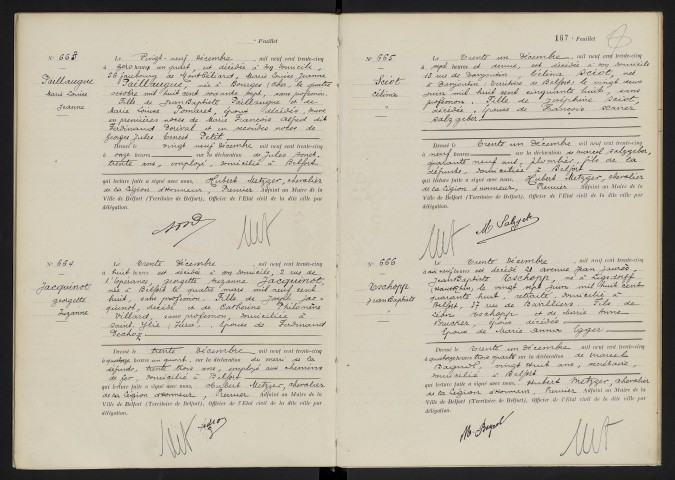 Feuillet
N° 663
Paillaugue
Marie Louise
Jeanne
Le Vingt-neuf Décembre, mil neuf cent trente-cinq
à zéro heure un quart, est décédée à son domicile,
26 faubourg de Montbéliard, Marie Louise Jeanne
Paillaugue, née à Bourges (Cher) le quatre
octobre mil huit cent soixante sept, sans profession.
Fille de Jean Baptiste Paillaugue et de
Marie Louise, époux décédés, veuve
en premières noces de Marie François Alfred dit
Ferdinand et en secondes noces de
Georges Jules Ernest Petit.
Dressé le vingt neuf Décembre, mil neuf cent trente-cinq
à onze heures, sur la déclaration de Jules
trente ans, employé, domicilié à Belfort
qui lecture faite a signé avec nous, Hubert Metzger, chevalier
de la Légion d'Honneur, Premier Adjoint au Maire de la
Ville de Belfort (Territoire de Belfort), Officier de l'Etat civil de la dite ville par
délégation.
N° 664
Jacquinot
Georgette
Suzanne
Le trente Décembre, mil neuf cent trente-cinq
à huit heures est décédée à son domicile, 2 rue de
l'Espérance, Georgette Suzanne Jacquinot,
née à Belfort le quatre mars mil neuf cent
huit, sans profession. Fille de Jac-
quinot, décédé et de Catherine Philomène
Villard, sans profession, domiciliée à
Saint Ylie, Jura. Epouse de Ferdinand
Dressé le trente Décembre, mil neuf cent trente-cinq
à quatorze heures un quart, sur la déclaration du mari de la
défunte, trente trois ans, employé aux chemins
de fer, domicilié à Belfort
qui lecture faite a signé avec nous, Hubert Metzger, chevalier
de la Légion d'Honneur, Premier Adjoint au Maire de la
Ville de Belfort (Territoire de Belfort), Officier de l'Etat civil de la dite ville par
délégation.
167 Feuillet
N° 665
Sciot
Célina
Le trente un Décembre, mil neuf cent trente-cinq
à sept heures et demie, est décédée à son domicile
18 rue de Danjoutin, Célina Sciot, née
à Danjoutin, Territoire de Belfort, le vingt deux
juin mil huit cent cinquante huit, sans
profession. Fille de Joséphine Sciot,
décédée, épouse de François Xavier
Salzgeber
Dressé le trente un Décembre, mil neuf cent trente-cinq
à neuf heures, sur la déclaration de Marcel Salzgeber,
quarante neuf ans, plombier, fils de la
défunte, domicilié à Belfort
qui lecture faite a signé avec nous, Hubert Metzger, chevalier
de la Légion d'Honneur, Premier Adjoint au Maire de la
Ville de Belfort (Territoire de Belfort), Officier de l'Etat civil de la dite ville par
délégation.
N° 666
Tschopp
Jean Baptiste
Le trente un Décembre, mil neuf cent trente-cinq
à six heures est décédé 21 avenue Jean Jaurès,
Jean Baptiste Tschopp, né à Ligsdorff
Haut-Rhin, le vingt sept juin mil huit cent
quarante huit, retraité, domicilié à
Belfort, 37 rue de Barbliers. Fils de
Léon Tschopp et de Marie Anne
époux décédés
Epoux de Marie Anna Egger
Dressé le trente un Décembre, mil neuf cent trente-cinq
à quatorze heures trois quarts, sur la déclaration de Marcel
vingt huit ans,
domicilié à Belfort
qui lecture faite a signé avec nous, Hubert Metzger, chevalier
de la Légion d'Honneur, Premier Adjoint au Maire de la
Ville de Belfort (Territoire de Belfort), Officier de l'Etat civil de la dite ville par
délégation.